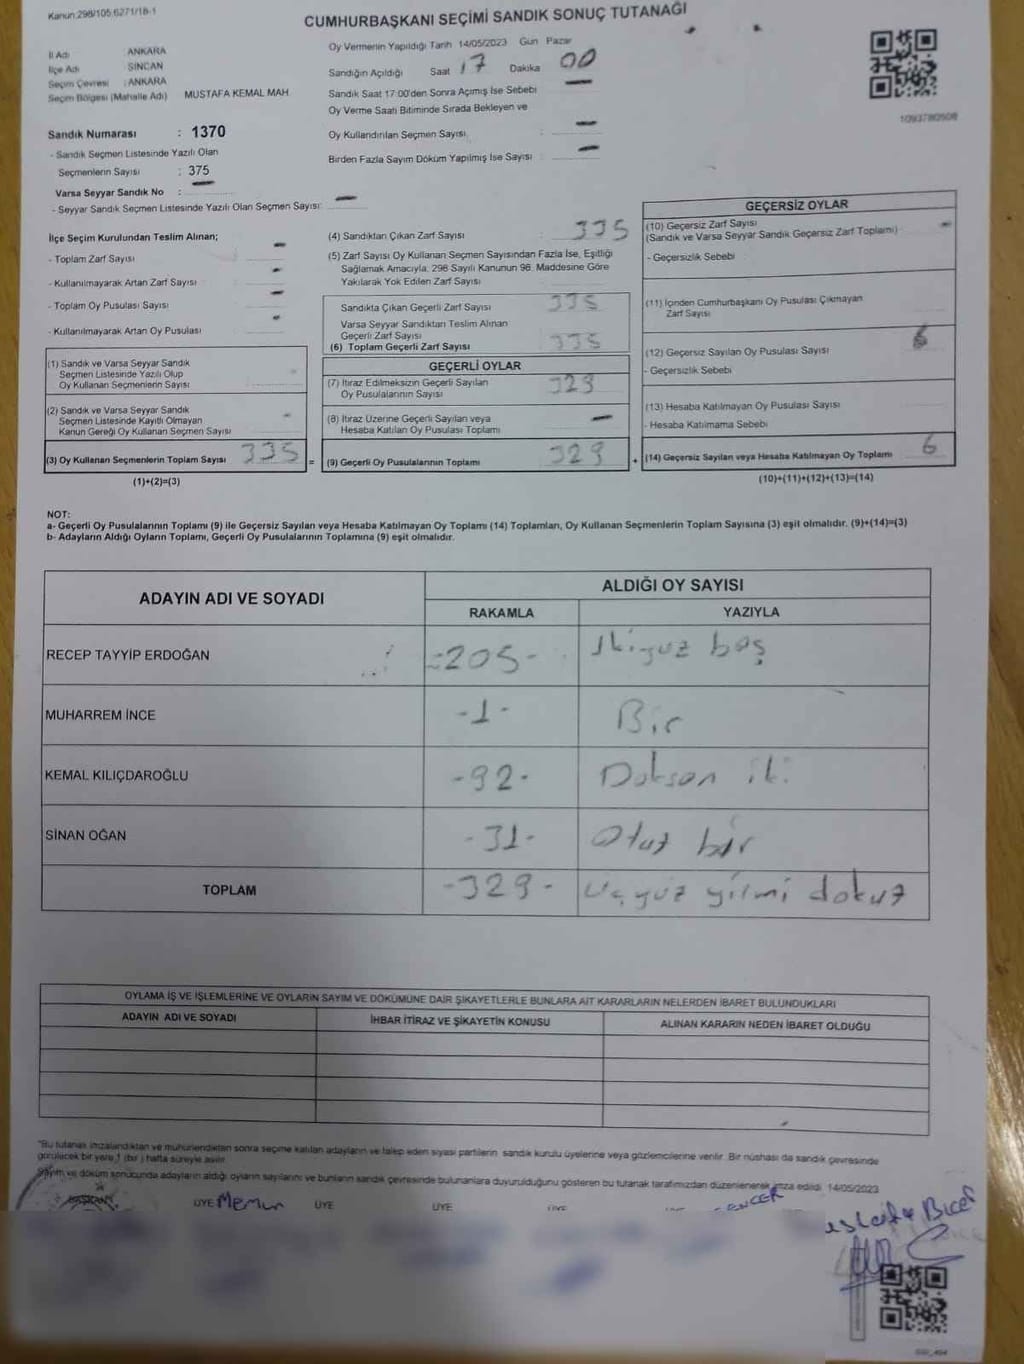 Kanun:298/105,6271/18-1
CUMHURBAŞKANI SEÇİMİ SANDIK SONUÇ TUTANAĞI
İl Adı : ANKARA
İlçe Adı : SİNCAN
Seçim Çevresi : ANKARA
Seçim Bölgesi (Mahalle Adı) MUSTAFA KEMAL MAH.
Sandık Numarası : 1370
- Sandık Seçmen Listesinde Yazılı Olan
Seçmenlerin Sayısı : 375
Varsa Seyyar Sandık No : -
- Seyyar Sandık Seçmen Listesinde Yazılı Olan Seçmen Sayısı: -
Oy Vermenin Yapıldığı Tarih 14/05/2023 Gün Pazar
Sandığın Açıldığı Saat 17 Dakika 00
Sandık Saat 17:00'den Sonra Açımış İse Sebebi -
Oy Verme Saati Bitiminde Sırada Bekleyen ve
Oy Kullandırılan Seçmen Sayısı : -
Birden Fazla Sayım Döküm Yapılmış İse Sayısı : -
1093780508
İlçe Seçim Kurulundan Teslim Alınan;
- Toplam Zarf Sayısı -
- Kullanılmayarak Artan Zarf Sayısı -
- Toplam Oy Pusulası Sayısı -
- Kullanılmayarak Artan Oy Pusulası -
(1) Sandık ve Varsa Seyyar Sandık
Seçmen Listesinde Yazılı Olup
Oy Kullanan Seçmenlerin Sayısı
(2) Sandık ve Varsa Seyyar Sandık
Seçmen Listesinde Kayıtlı Olmayan
Kanun Gereği Oy Kullanan Seçmen Sayısı -
(3) Oy Kullanan Seçmenlerin Toplam Sayısı 335 =
(1)+(2)=(3)
(4) Sandıktan Çıkan Zarf Sayısı : 335
(5) Zarf Sayısı Oy Kullanan Seçmen Sayısından Fazla İse, Eşitliği
Sağlamak Amacıyla, 298 Sayılı Kanunun 98. Maddesine Göre
Yakılarak Yok Edilen Zarf Sayısı
Sandıkta Çıkan Geçerli Zarf Sayısı 335
Varsa Seyyar Sandıktan Teslim Alınan
Geçerli Zarf Sayısı
(6) Toplam Geçerli Zarf Sayısı 335
GEÇERLİ OYLAR
(7) İtiraz Edilmeksizin Geçerli Sayılan
Oy Pusulalarının Sayısı 329
(8) İtiraz Üzerine Geçerli Sayılan veya
Hesaba Katılan Oy Pusulası Toplamı -
(9) Geçerli Oy Pusulalarının Toplamı 329 +
GEÇERSİZ OYLAR
(10) Geçersiz Zarf Sayısı
(Sandık ve Varsa Seyyar Sandık Geçersiz Zarf Toplamı) -
- Geçersizlik Sebebi
(11) İçinden Cumhurbaşkanı Oy Pusulası Çıkmayan
Zarf Sayısı
(12) Geçersiz Sayılan Oy Pusulası Sayısı 6
- Geçersizlik Sebebi
(13) Hesaba Katılmayan Oy Pusulası Sayısı
- Hesaba Katılmama Sebebi
(14) Geçersiz Sayılan veya Hesaba Katılmayan Oy Toplamı 6
(10)+(11)+(12)+(13)=(14)
NOT:
a- Geçerli Oy Pusulalarının Toplamı (9) ile Geçersiz Sayılan veya Hesaba Katılmayan Oy Toplamı (14) Toplamları, Oy Kullanan Seçmenlerin Toplam Sayısına (3) eşit olmalıdır. (9)+(14)=(3)
b- Adayların Aldığı Oyların Toplamı, Geçerli Oy Pusulalarının Toplamına (9) eşit olmalıdır.
ADAYIN ADI VE SOYADI ALDIĞI OY SAYISI
RAKAMLA YAZIYLA
RECEP TAYYİP ERDOĞAN =205- İkiyüz beş
MUHARREM İNCE -1- Bir
KEMAL KILIÇDAROĞLU -92- Doksan iki
SİNAN OĞAN -31- Otuz bir
TOPLAM -329- Üçyüz yirmi dokuz
OYLAMA İŞ VE İŞLEMLERİNE VE OYLARIN SAYIM VE DÖKÜMÜNE DAİR ŞİKAYETLERLE BUNLARA AİT KARARLARIN NELERDEN İBARET BULUNDUKLARI
ADAYIN ADI VE SOYADI İHBAR İTİRAZ VE ŞİKAYETİN KONUSU ALINAN KARARIN NEDEN İBARET OLDUĞU
"Bu tutanak imzalandıktan ve mühürlendikten sonra seçime katılan adayların ve talep eden siyasi partilerin sandık kurulu üyelerine veya gözlemcilerine verilir. Bir nüshası da sandık çevresinde
görülecek bir yere 1 (bir) hafta süreyle asılır.
Sayım ve döküm sonucunda adayların aldığı oyların sayılarını ve bunların sandık çevresinde bulunanlara duyurulduğunu gösteren bu tutanak tarafımızdan düzenlenerek imza edildi. 14/05/2023
BAŞKAN ÜYE Memur ÜYE ÜYE ÜYE